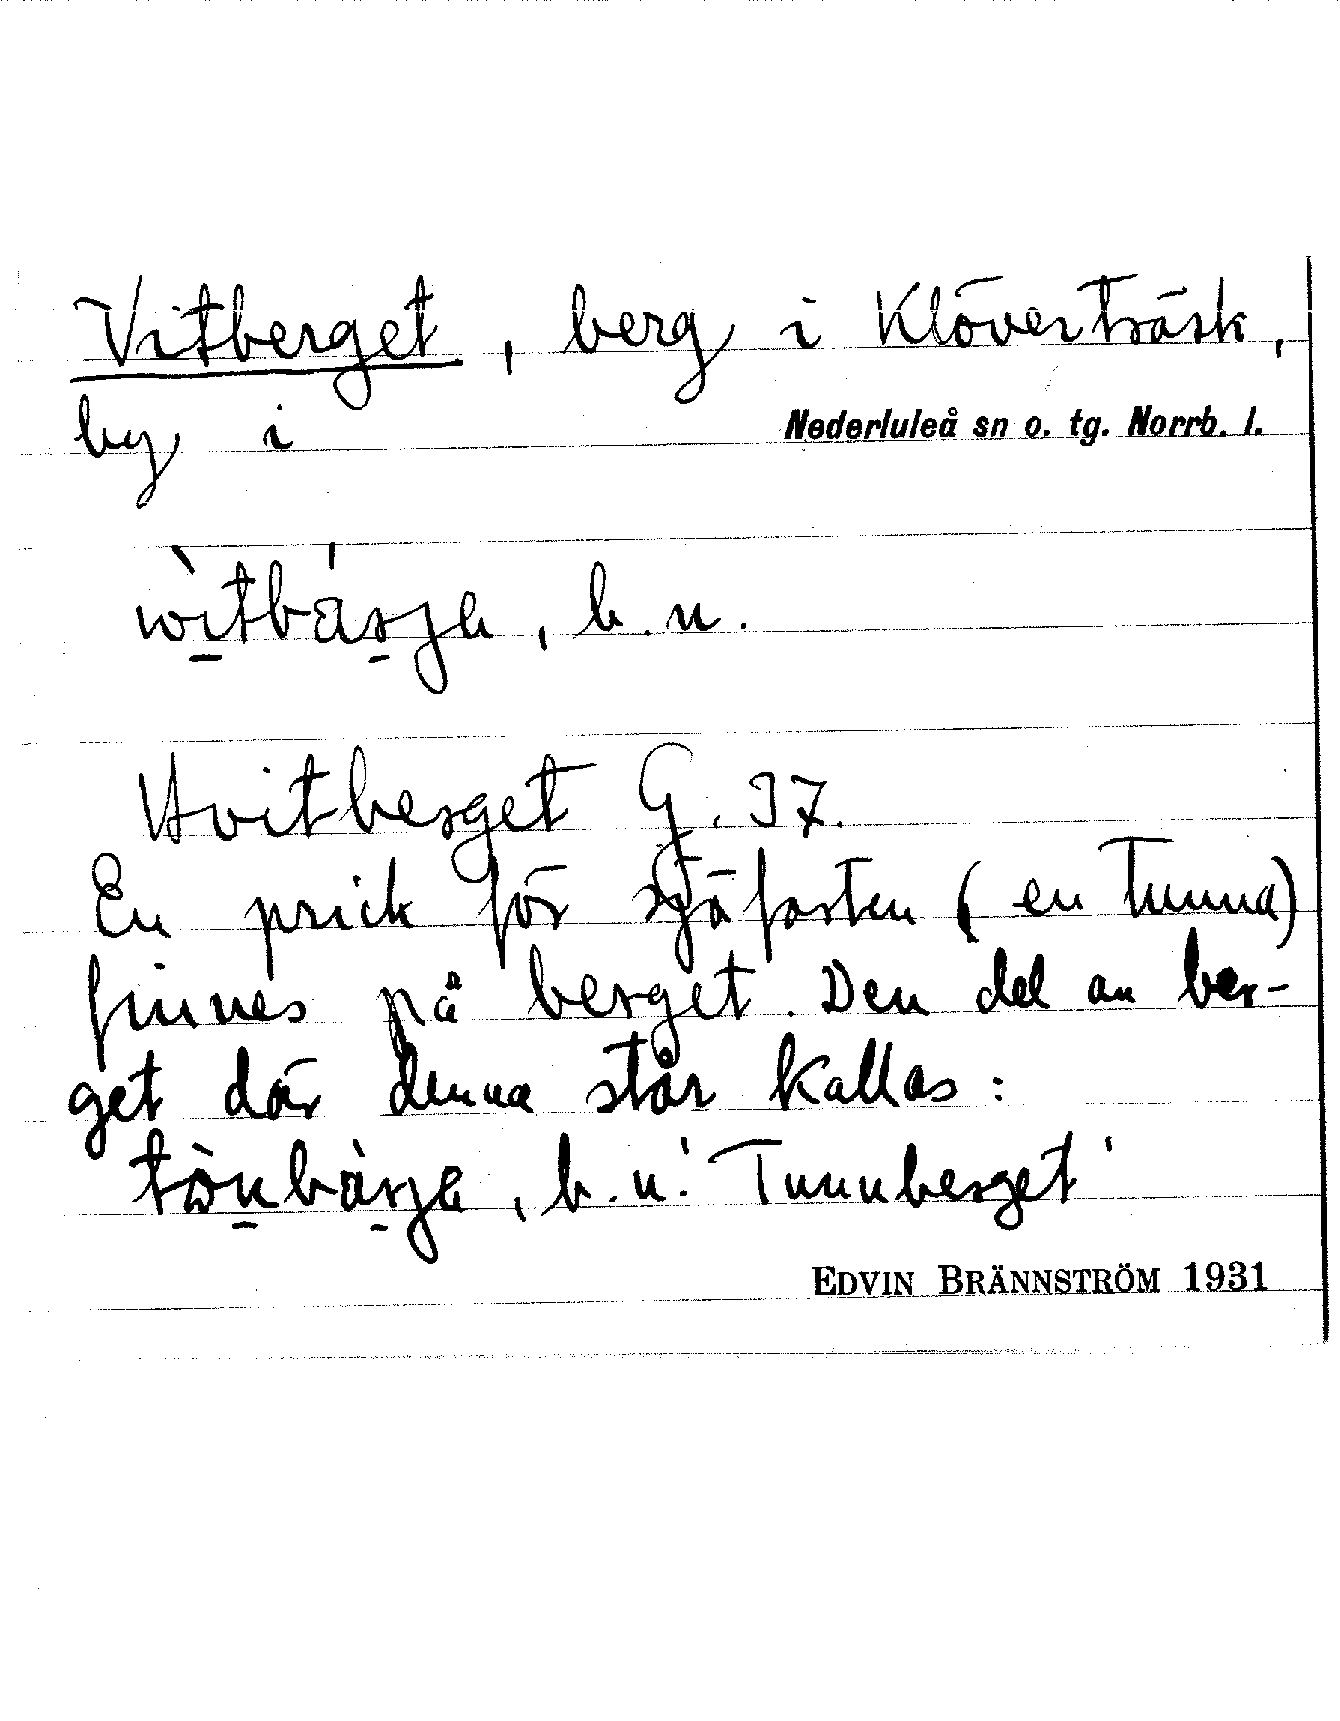 Vitberget, berg i Klöverträsk,
by i Nederluleå sn o. tg. Norrb. l.
wìtbárje, b.n.
Hvitberget G. 37.
En prick för sjöfarten (en tunna)
finnes på berget. Den del av ber-
get där denna står kallas:
tònbàrje, b.n. 'Tunnberget'
EDVIN BRÄNNSTRÖM 1931